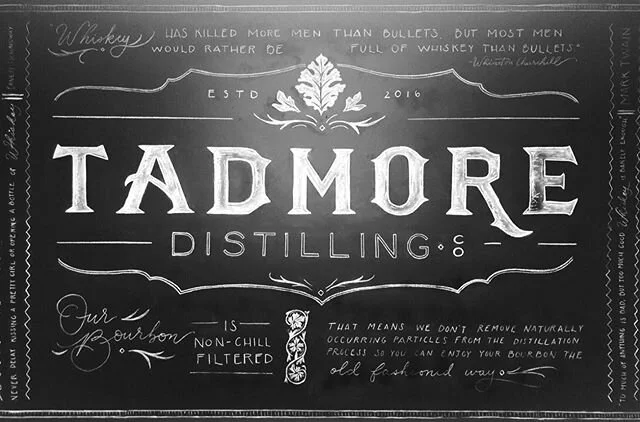 "Whiskey HAS KILLED MORE MEN THAN BULLETS, BUT MOST MEN
WOULD RATHER BE FULL OF WHISKEY THAN BULLETS."
-Winston Churchill
ESTD 2016
TADMORE
DISTILLING · CO
Our Bourbon
IS
NON-CHILL
FILTERED
THAT MEANS WE DON'T REMOVE NATURALLY
OCCURRING PARTICLES FROM THE DISTILLATION
PROCESS SO YOU CAN ENJOY YOUR BOURBON THE
old fashioned way
NEVER DELAY KISSING A PRETTY GIRL OR OPENING A BOTTLE OF Whiskey
"TO MUCH OF ANYTHING IS BAD, BUT TOO MUCH GOOD Whiskey IS BARELY ENOUGH" MARK TWAIN